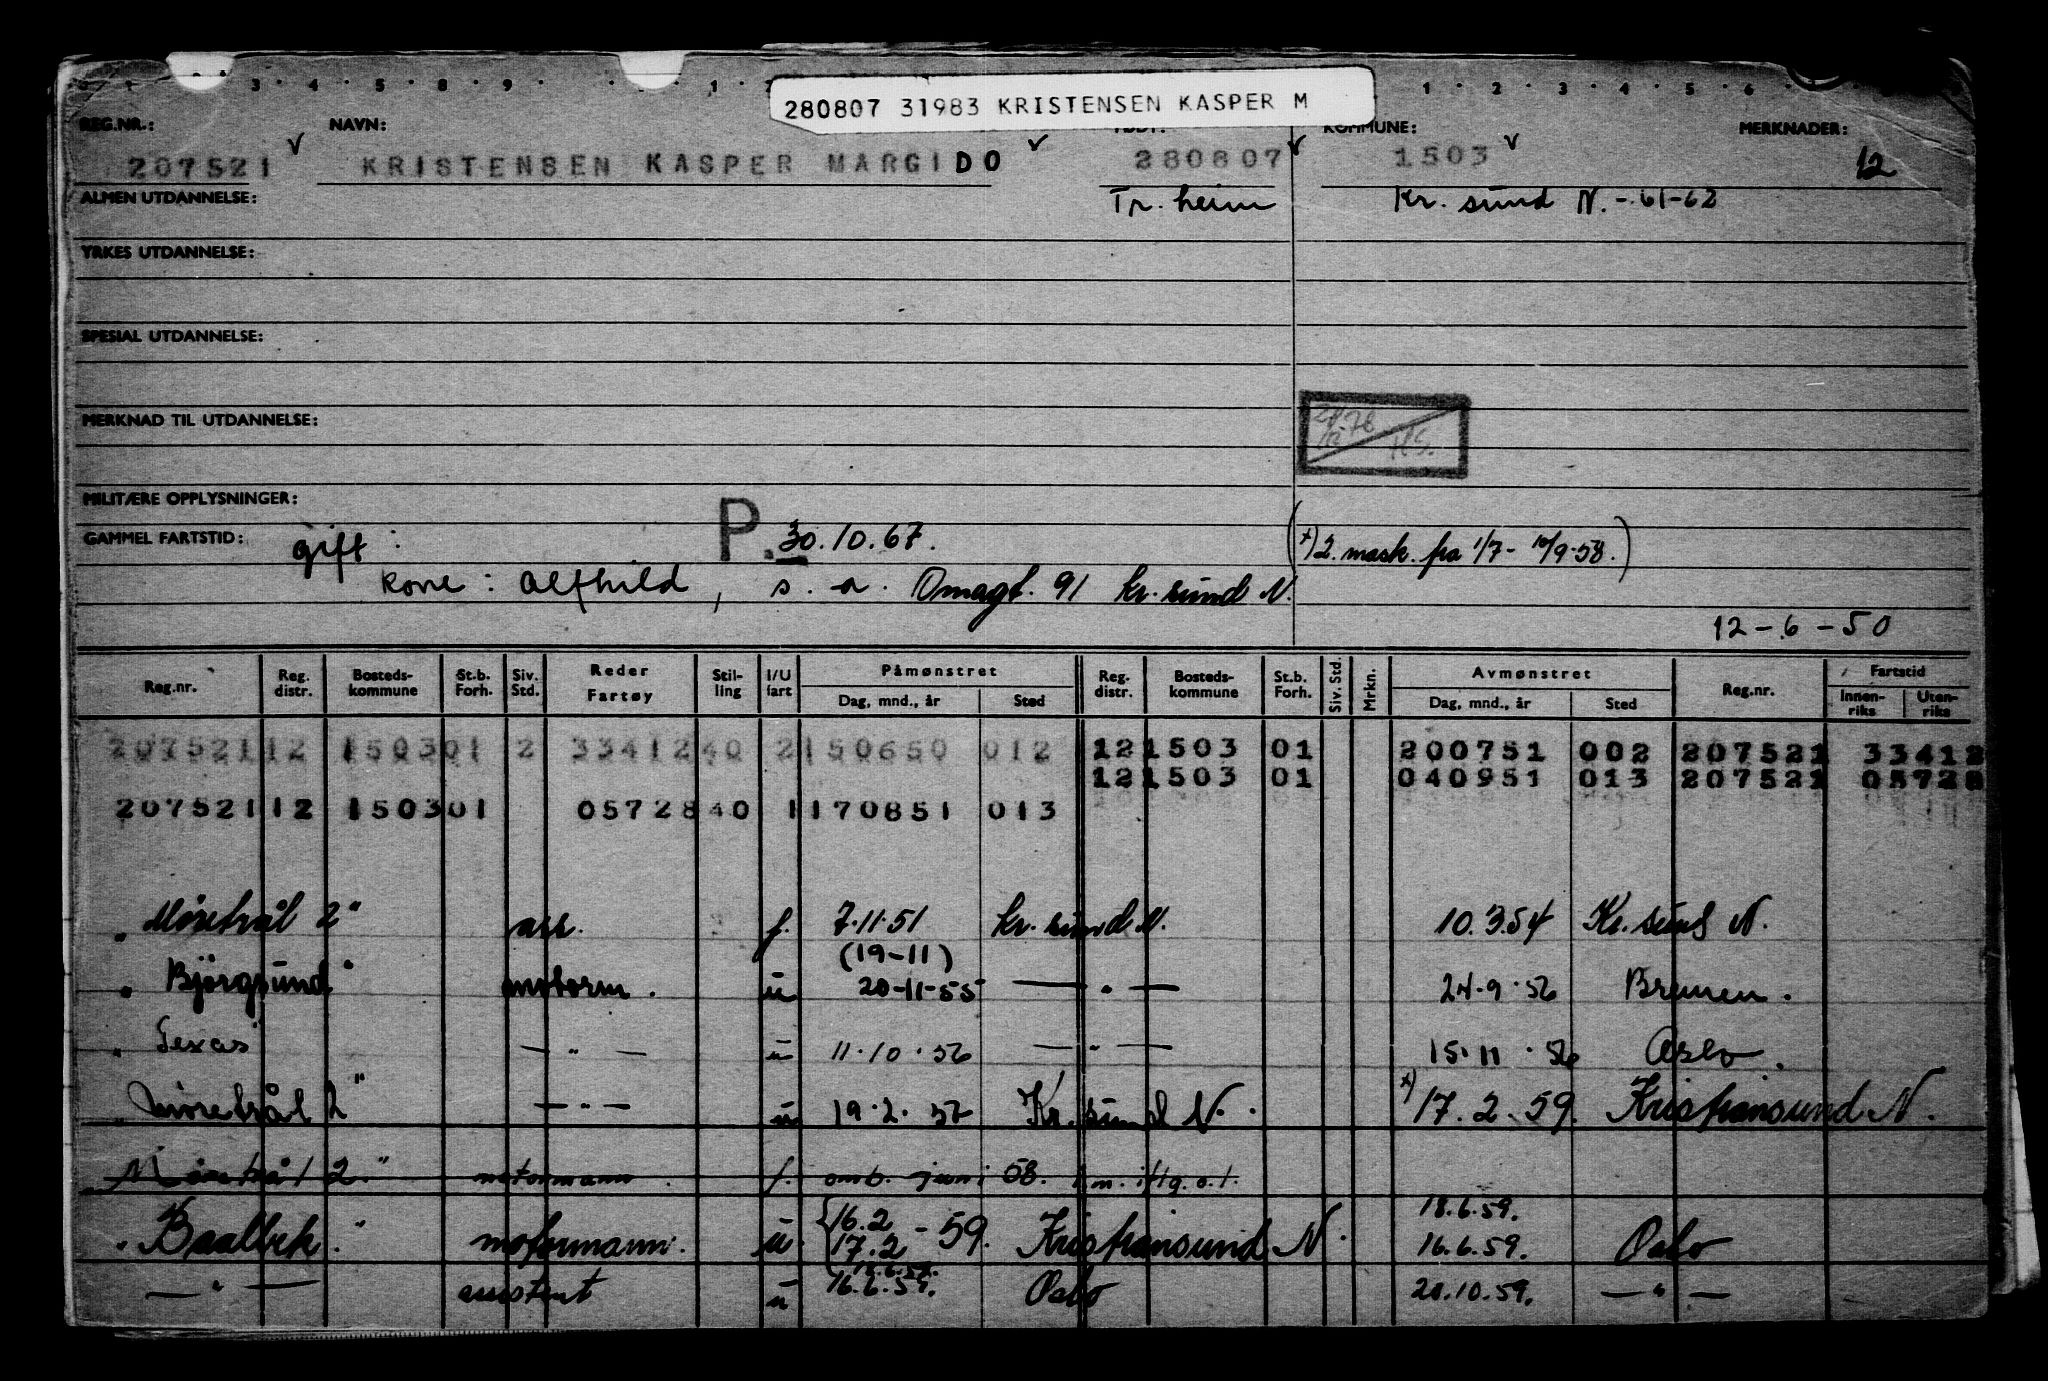 280807 31983 KRISTENSEN KASPER M
REG.NR.: NAVN: KOMMUNE: MERKNADER:
207521 KRISTENSEN KASPER MARGIDO 280807 1503 12
ALMEN UTDANNELSE: Tr. heim Kr. sund N. - 61-62
YRKES UTDANNELSE:
SPESIAL UTDANNELSE:
MERKNAD TIL UTDANNELSE:
MILITÆRE OPPLYSNINGER:
GAMMEL FARTSTID: gift : P. 30.10.67. (x) 2. mask. fra 1/7 - 10/9-58.)
kone : Alfhild, s. a. Omagt. 91 Kr. sund N.
12-6-50
Reg.nr. Reg. distr. Bosteds-kommune St.b. Forh. Siv. Std. Reder Fartøy Stil-ling I/U fart Påmønstret Reg. distr. Bosteds-kommune St.b. Forh. Siv. Std. Mrkn. Avmønstret Reg.nr. Fartstid
Dag, mnd., år Sted Dag, mnd., år Sted Innen-riks Uten-riks
207521 12 1503 01 2 33412 40 2 150650 012 12 1503 01 200751 002 207521 33412
12 1503 01 040951 013 207521 05728
207521 12 1503 01 05728 40 1 170851 013
„ Møretrål 2" ass. f. 7.11.51 Kr. sund N. 10.3.54 Kr. sund N.
(19-11)
„ Bjørgsund" motorm. u 20-11-55 — " — 24.9.56 Bremen.
„ Texas — " — u 11.10.56 — " — 15.11.56 Oslo.
„ Møretrål 2" — " — u 19.2.57 Kr. sund N. x) 17.2.59. Kristiansund N.
„ Møretrål 2." motormann f. omb. juni 58.
18.6.59.
„ Baalbek." motormann. u. {16.2 17.2 - 59. Kristiansund N. 16.6.59. Oslo
— " — assistent u 16.6.59. Oslo 20.10.59. — " —